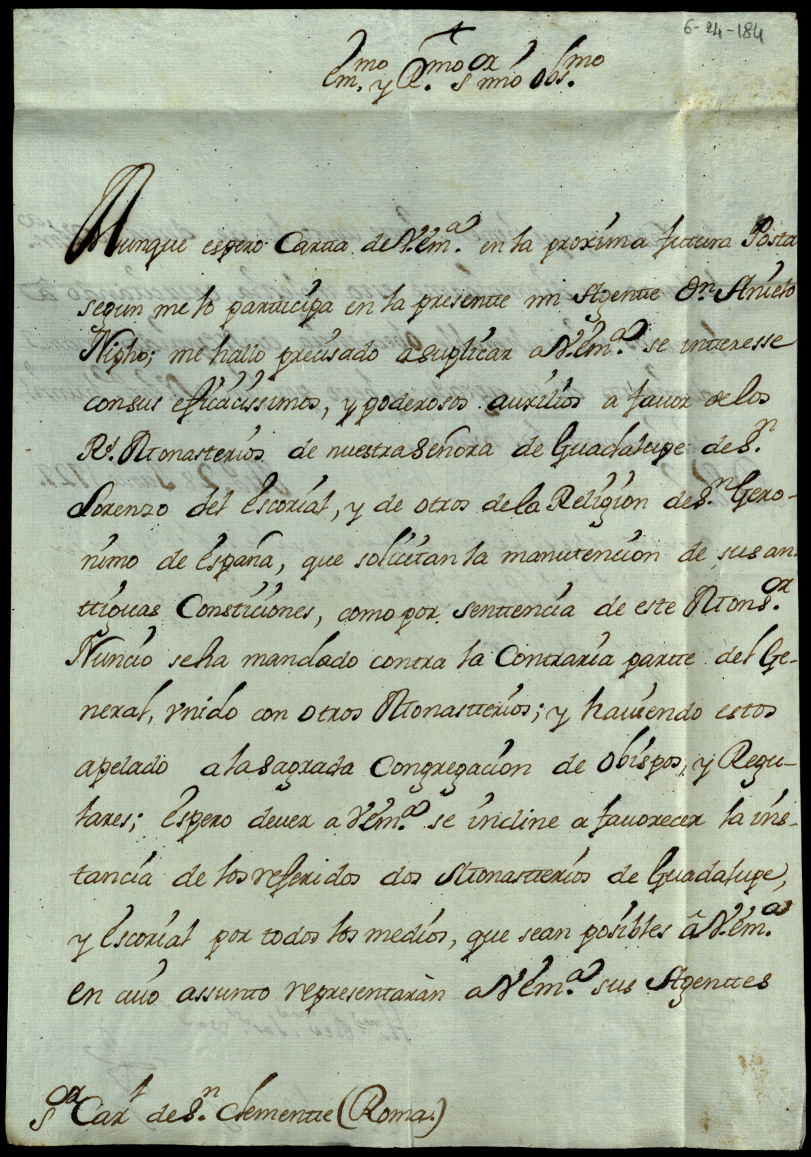 6-24-184
Em.mo y R.mo S.or mio Obs.mo
Aunque espero Carta de V.Em.a en la proxima futura Posta
segun me lo participa en la presentte mi Agentte Dn. Anieto
Nipho; me hallo precisado a suplicar a V.Em.a se interesse
con sus eficacissimos, y poderosos auxilios a favor de los
Rs. Monasterios de nuestra Señora de Guadalupe de Sn.
Lorenzo del Escorial, y de otros de la Religion de Sn. Gero-
nimo de España, que solicitan la manutencion de sus an-
ttiguas Consticiones, como por senttencia de este Mons.or
Nuncio se ha mandado contra la Contraria partte del Ge-
neral, vnido con otros Monastterios; y haviendo estos
apelado a la Sagrada Congregacion de Obispos, y Regu-
lares; Espero dever a V.Em.a se incline a favorecer la ins-
tancia de los referidos dos Monastterios de Guadalupe,
y Escorial por todos los medios, que sean posibles â V.Em.a
en cuio assunto representaràn a V.Em.a sus Agenttes
S.or Car.l de Sn. Clementte (Roma.)